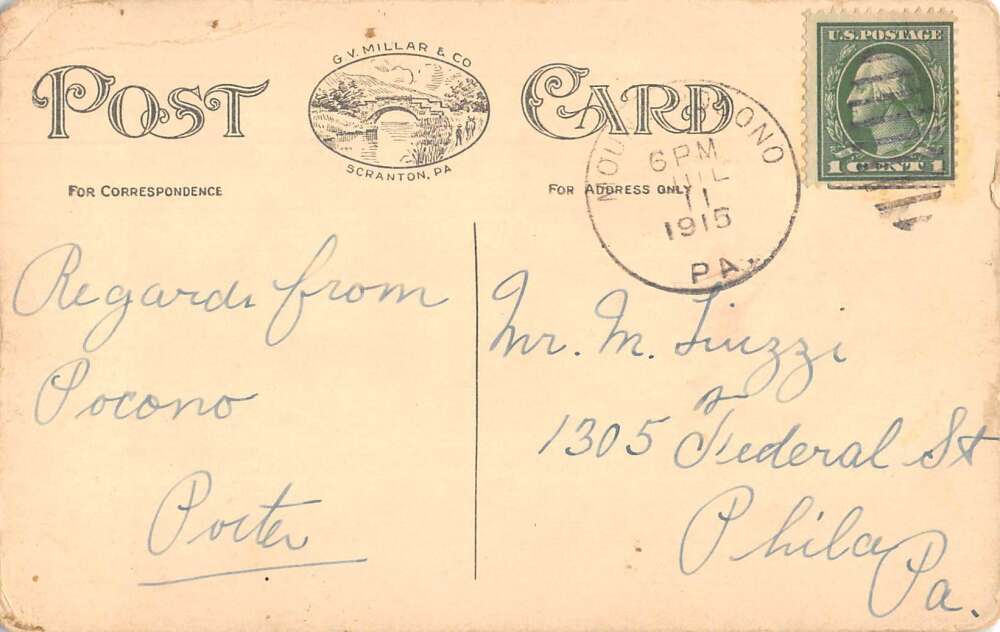 POST CARD
G.V. MILLAR & CO
SCRANTON, PA
FOR CORRESPONDENCE
FOR ADDRESS ONLY
U.S. POSTAGE
1 CENT 1
6 PM
JUL
11
1915
PA.
Regards from
Pocono
Porter
Mr. M. Liuzzi
1305 Federal St
Phila
Pa.